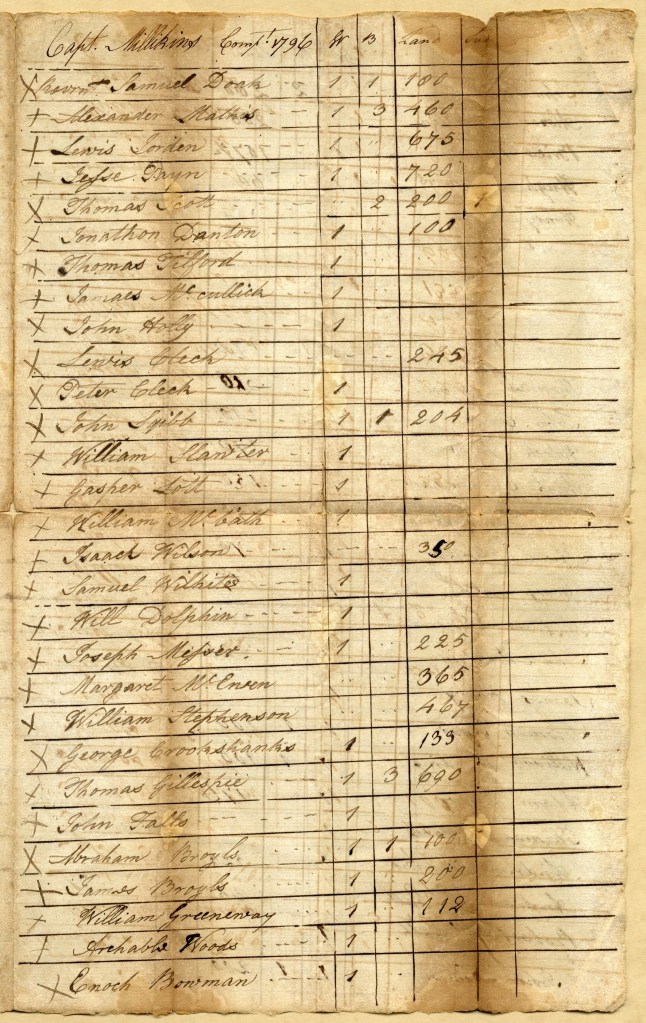 Capt. Millikins Compt. 1796 W B Land
X Revrnd Samuel Doak 1 1 100
+ Alexander Mathis 1 3 460
+ Lewis Jorden 1 675
+ Jesse Payn 1 720
X Thomas Scott 2 200 1
X Jonathon Danton 1 100
X Thomas Tilford 1
X Jamaes McCullick 1
X John Holly 1
X Lewis Cleck 245
X Peter Cleck 1
X John 1 1 204
X William Slawter 1
+ Gasper Lott 1
X William McCath 1
+ Isaack Wilson 350
+ Samuel Wilhite 1
X Will Dolphin 1
+ Joseph Messer 1 225
X Margaret McEwen 365
X William Stephenson 467
X George Crookshanks 1 133
+ Thomas Gillespie 1 3 690
X John Falls 1
X Abraham Broyls 1 1 100
+ James Broyls 1 200
+ William Greeneway 1 112
+ Archable Woods 1
X Enoch Bowman 1